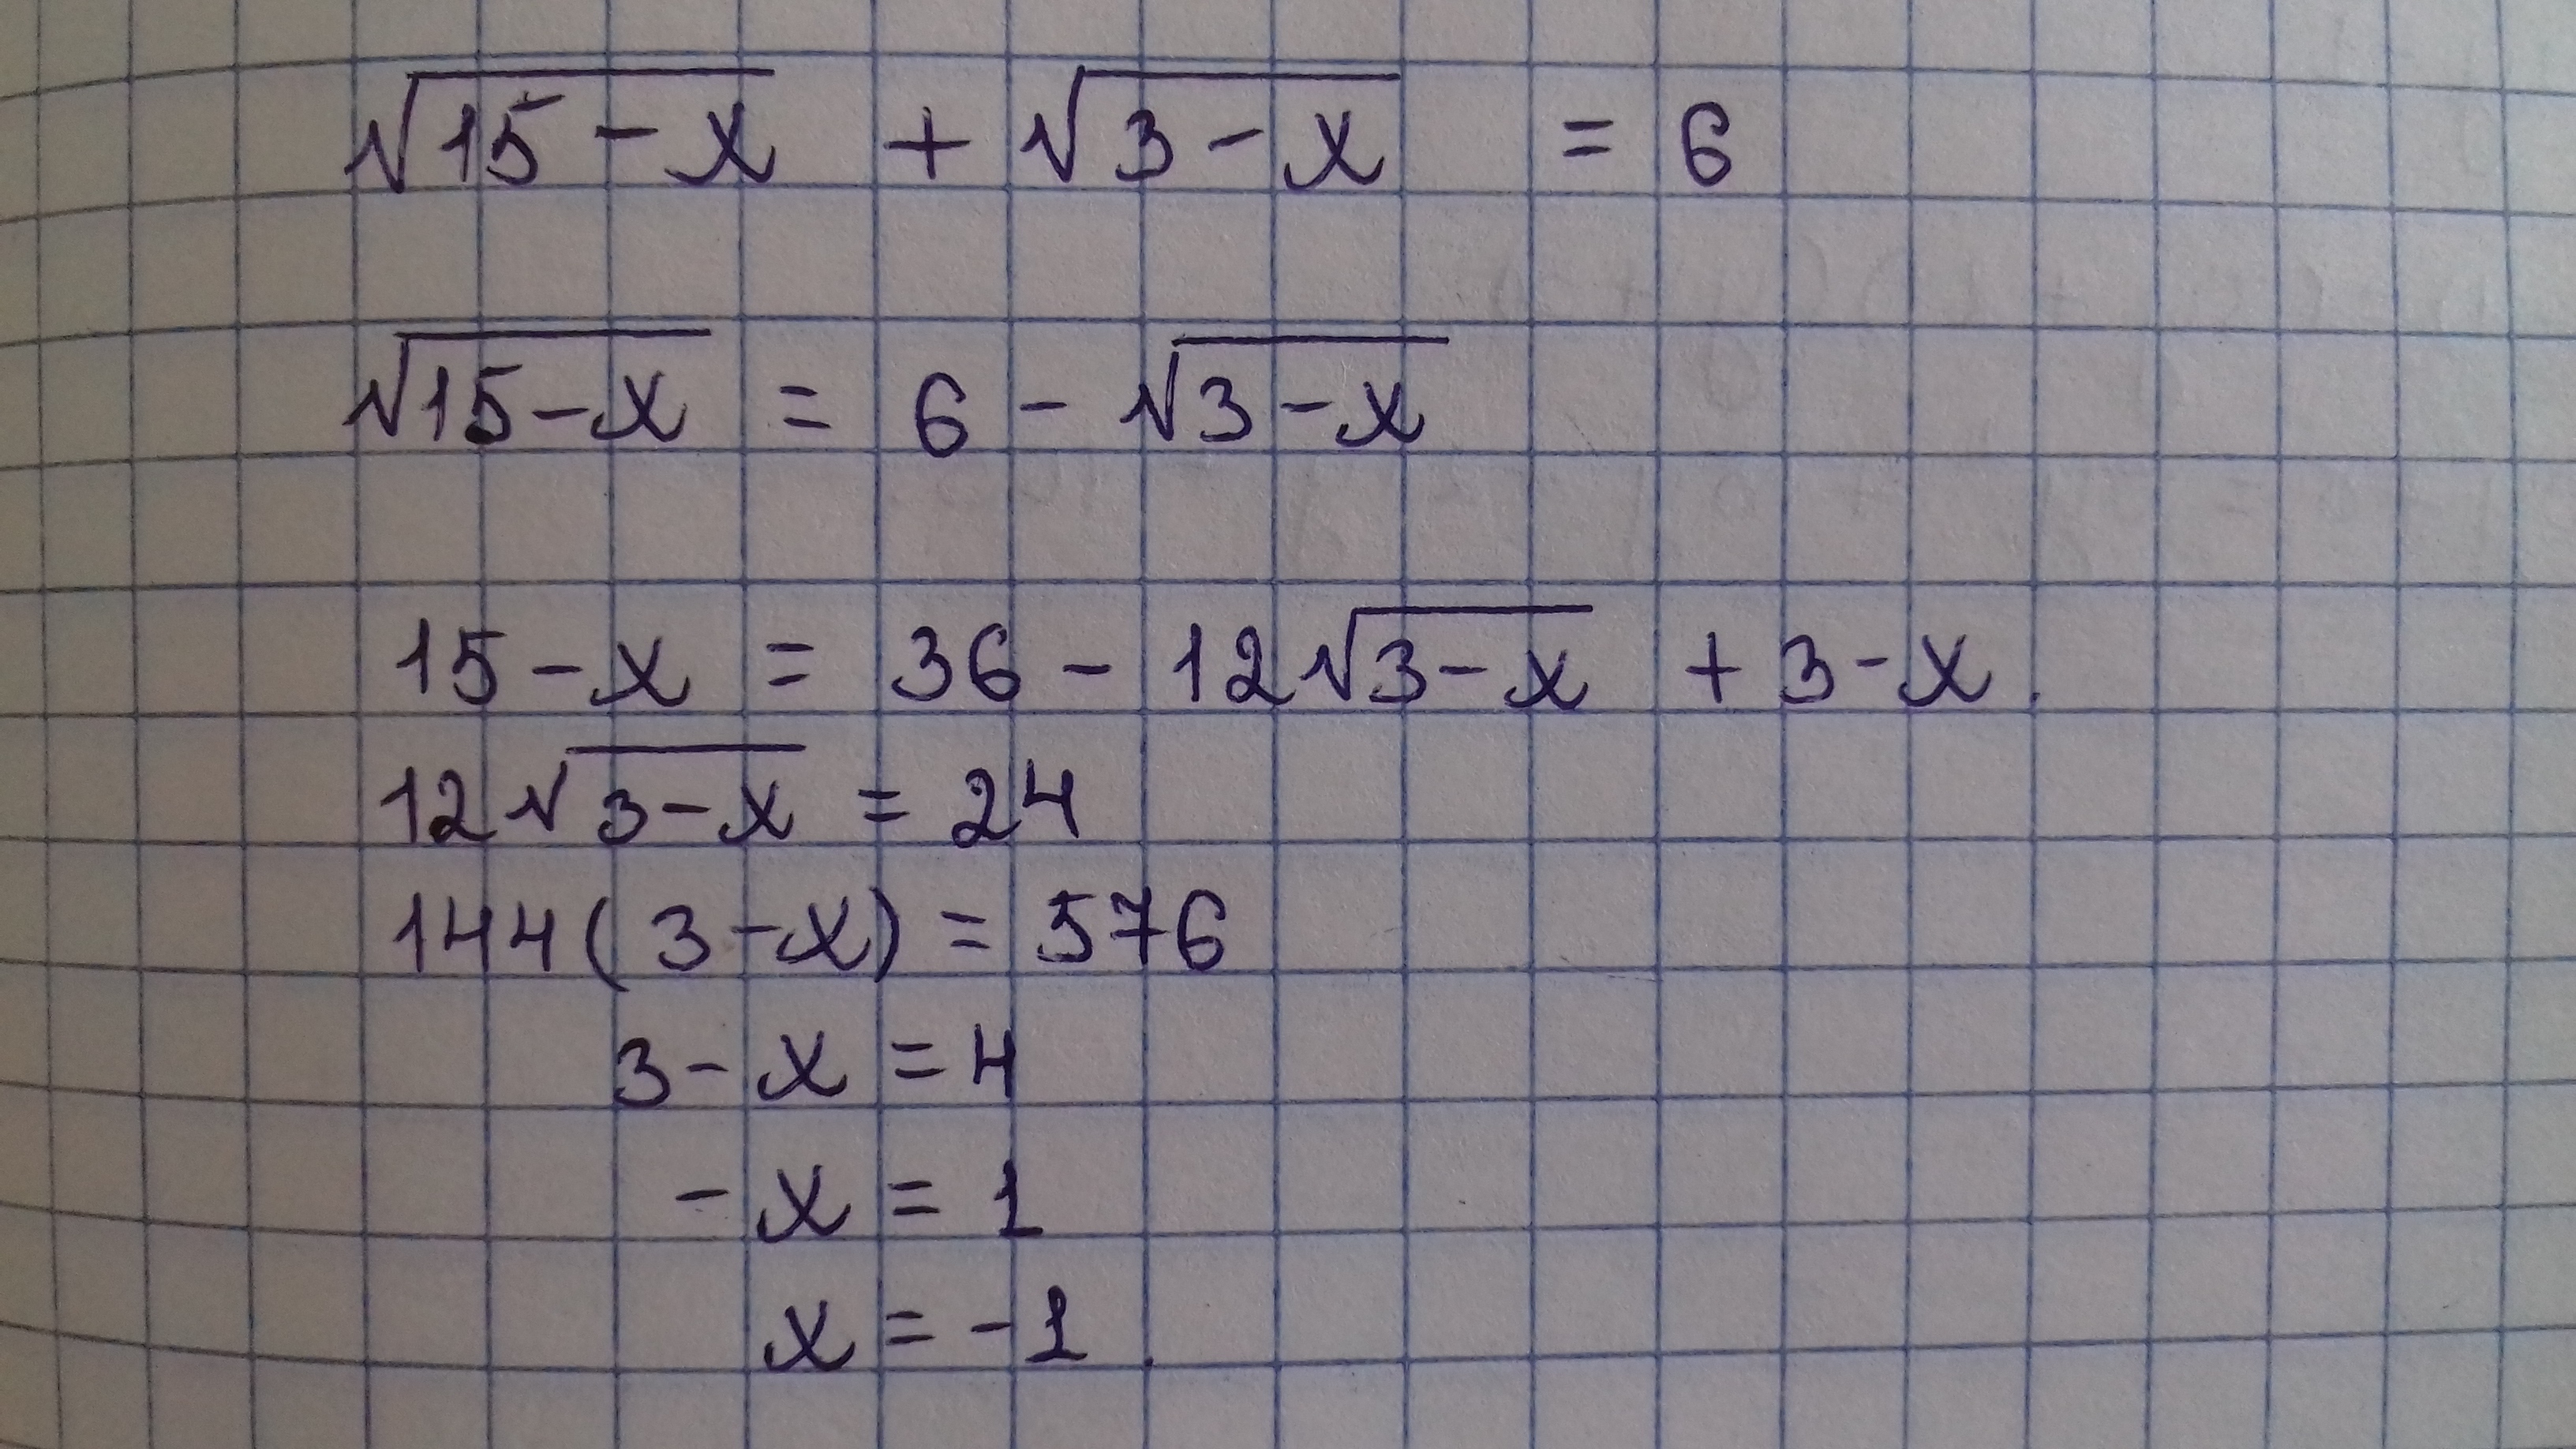 √15 - x + √3 - x = 6
√15 - x = 6 - √3 - x
15 - x = 36 - 12√3 - x + 3 - x.
12√3 - x = 24
144(3 - x) = 576
3 - x = 4
- x = 1
x = -1.